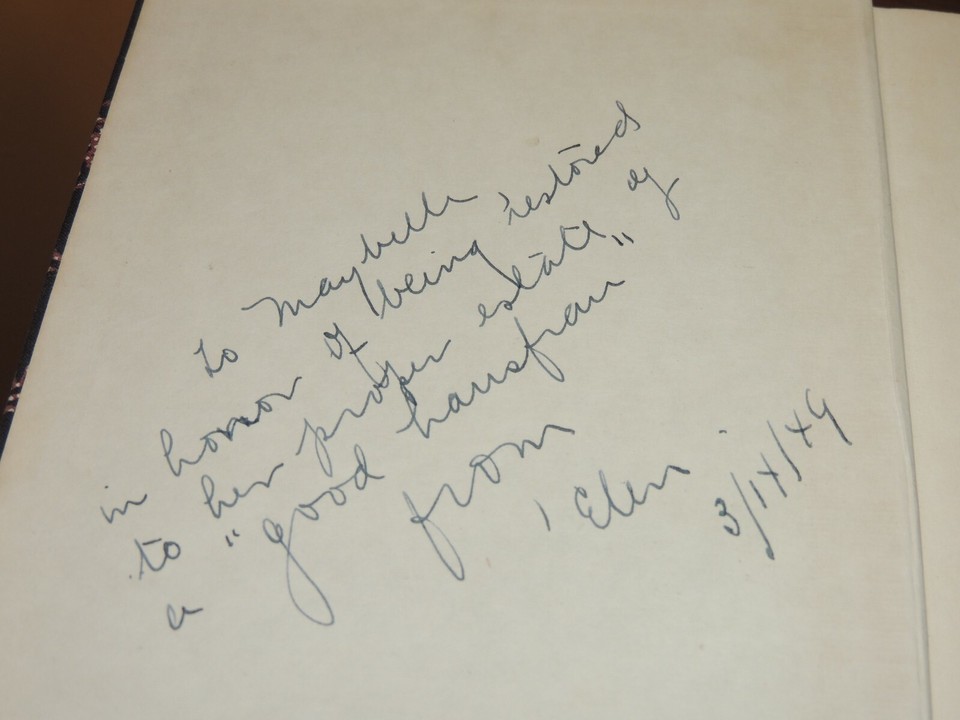 to Maybelle
in honor of being restored
to her proper estate of
a "good hausfrau"
from
Elen
3/14/49